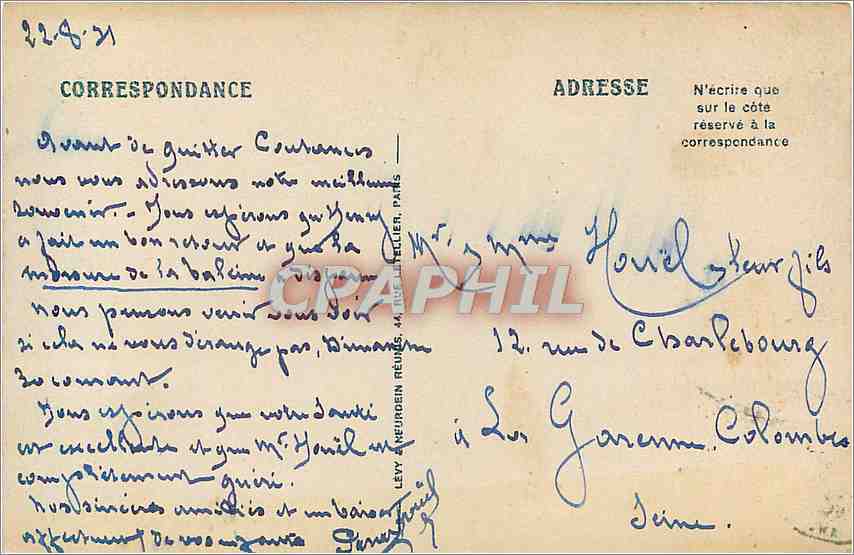 22-8-31
CORRESPONDANCE
Avant de quitter Coutances
nous vous adressons notre meilleur
souvenir. - Nous espérons qu'Henry
a fait un bon retour et que la
de la baleine a disparu
nous pensons venir vous voir
si cela ne vous dérange pas, Dimanche
30 courant.
Nous espérons que votre santé
est excellente et que Mr. Houël est
complètement guéri.
Nos sincères amitiés et un baiser
affectueux de vos
LEVY & NEURDEIN RÉUNIS, 44, RUE LETELLIER, PARIS
CPAPHIL
ADRESSE
N'écrire que
sur le côté
réservé à la
correspondance
Mr. & Mme Houël & leur fils
12. rue de Charlebourg
à La Garenne Colombes
Seine.